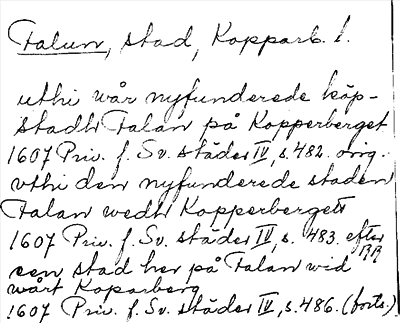 Falun, stad, Kopparb. l.
uthi wår nyfunderede köp-
stadh Falan på Kopperberget
1607 Priv. f. Sv. städer IV, s. 482. orig.
vthi den nyfunderede staden
Falan wedh Kopperberget
1607 Priv. f. Sv. städer IV, s. 483. efter RR
een stad her på Falan wid
wårt Koparberg
1607 Priv. f. Sv. städer IV, s. 486. (forts.)